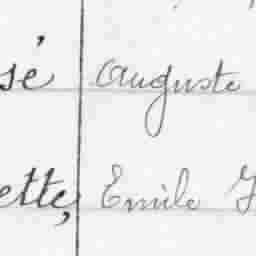 sé Auguste
ette, Emile